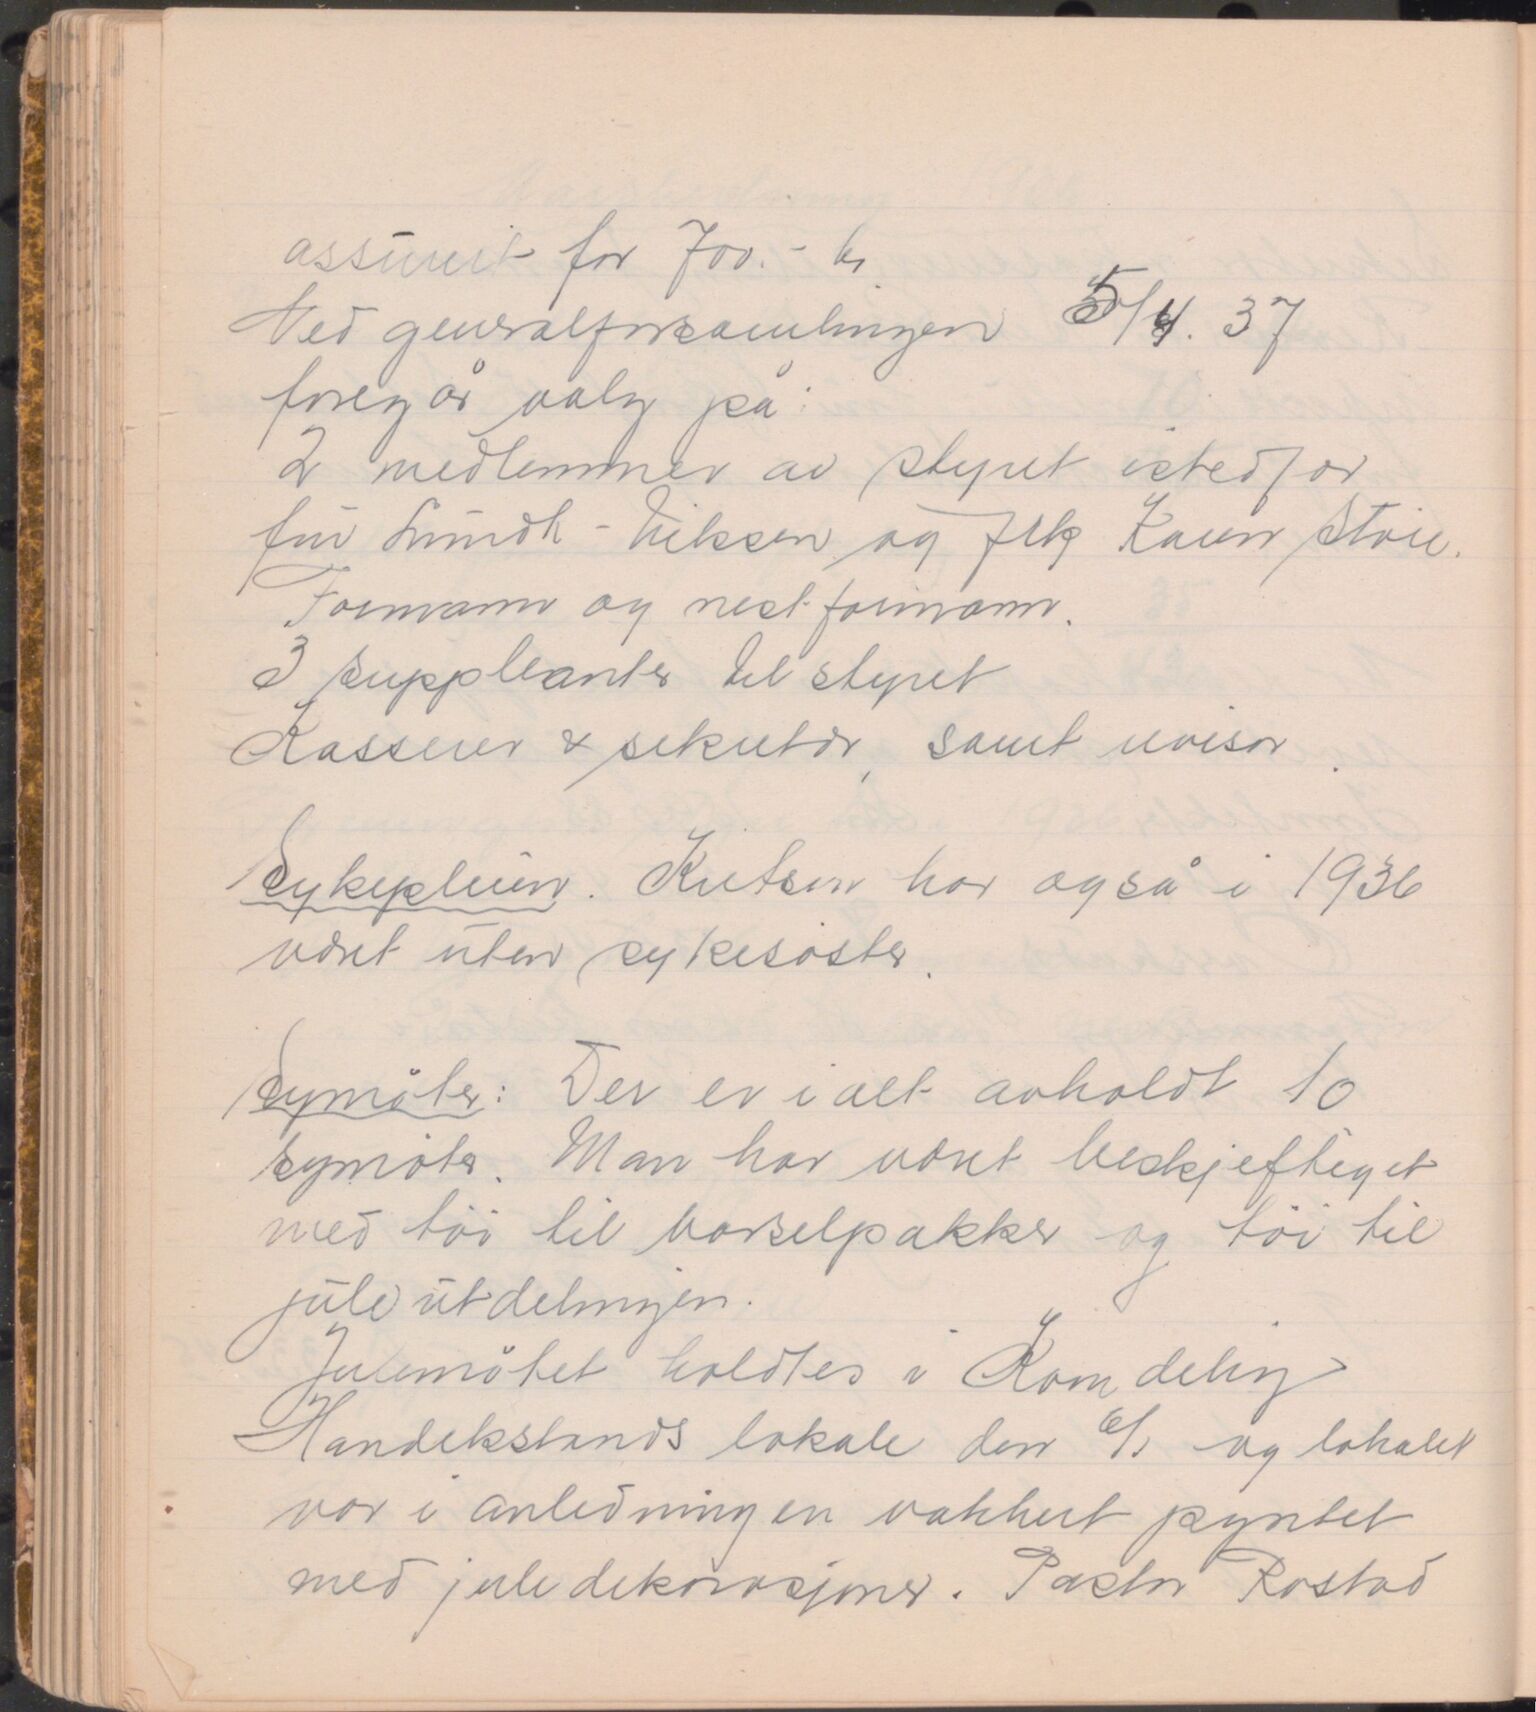 assurert for 700.- kr
Ved generalforsamlingen 5/4. 37
foregår valg på:
2 medlemmer av styret istedfor
fru Lundh-Eriksen og frk Karen Støre.
Formann og nestformann.
3 suppleanter til styret
Kasserer & sekretær, samt revisor.
Sykepleien. Kretsen har også i 1936
været uten sykesøster.
Symøter: Der er i alt avholdt 10
symøter. Man har været beskjeftiget
med tøi til barselpakker og tøi til
juleutdelingen.
Julemøtet holdtes i Kom deling
Handelsstands lokale den 6/1 og lokalet
var i anledningen vakkert pyntet
med juledekorasjoner. Pastor Rostad